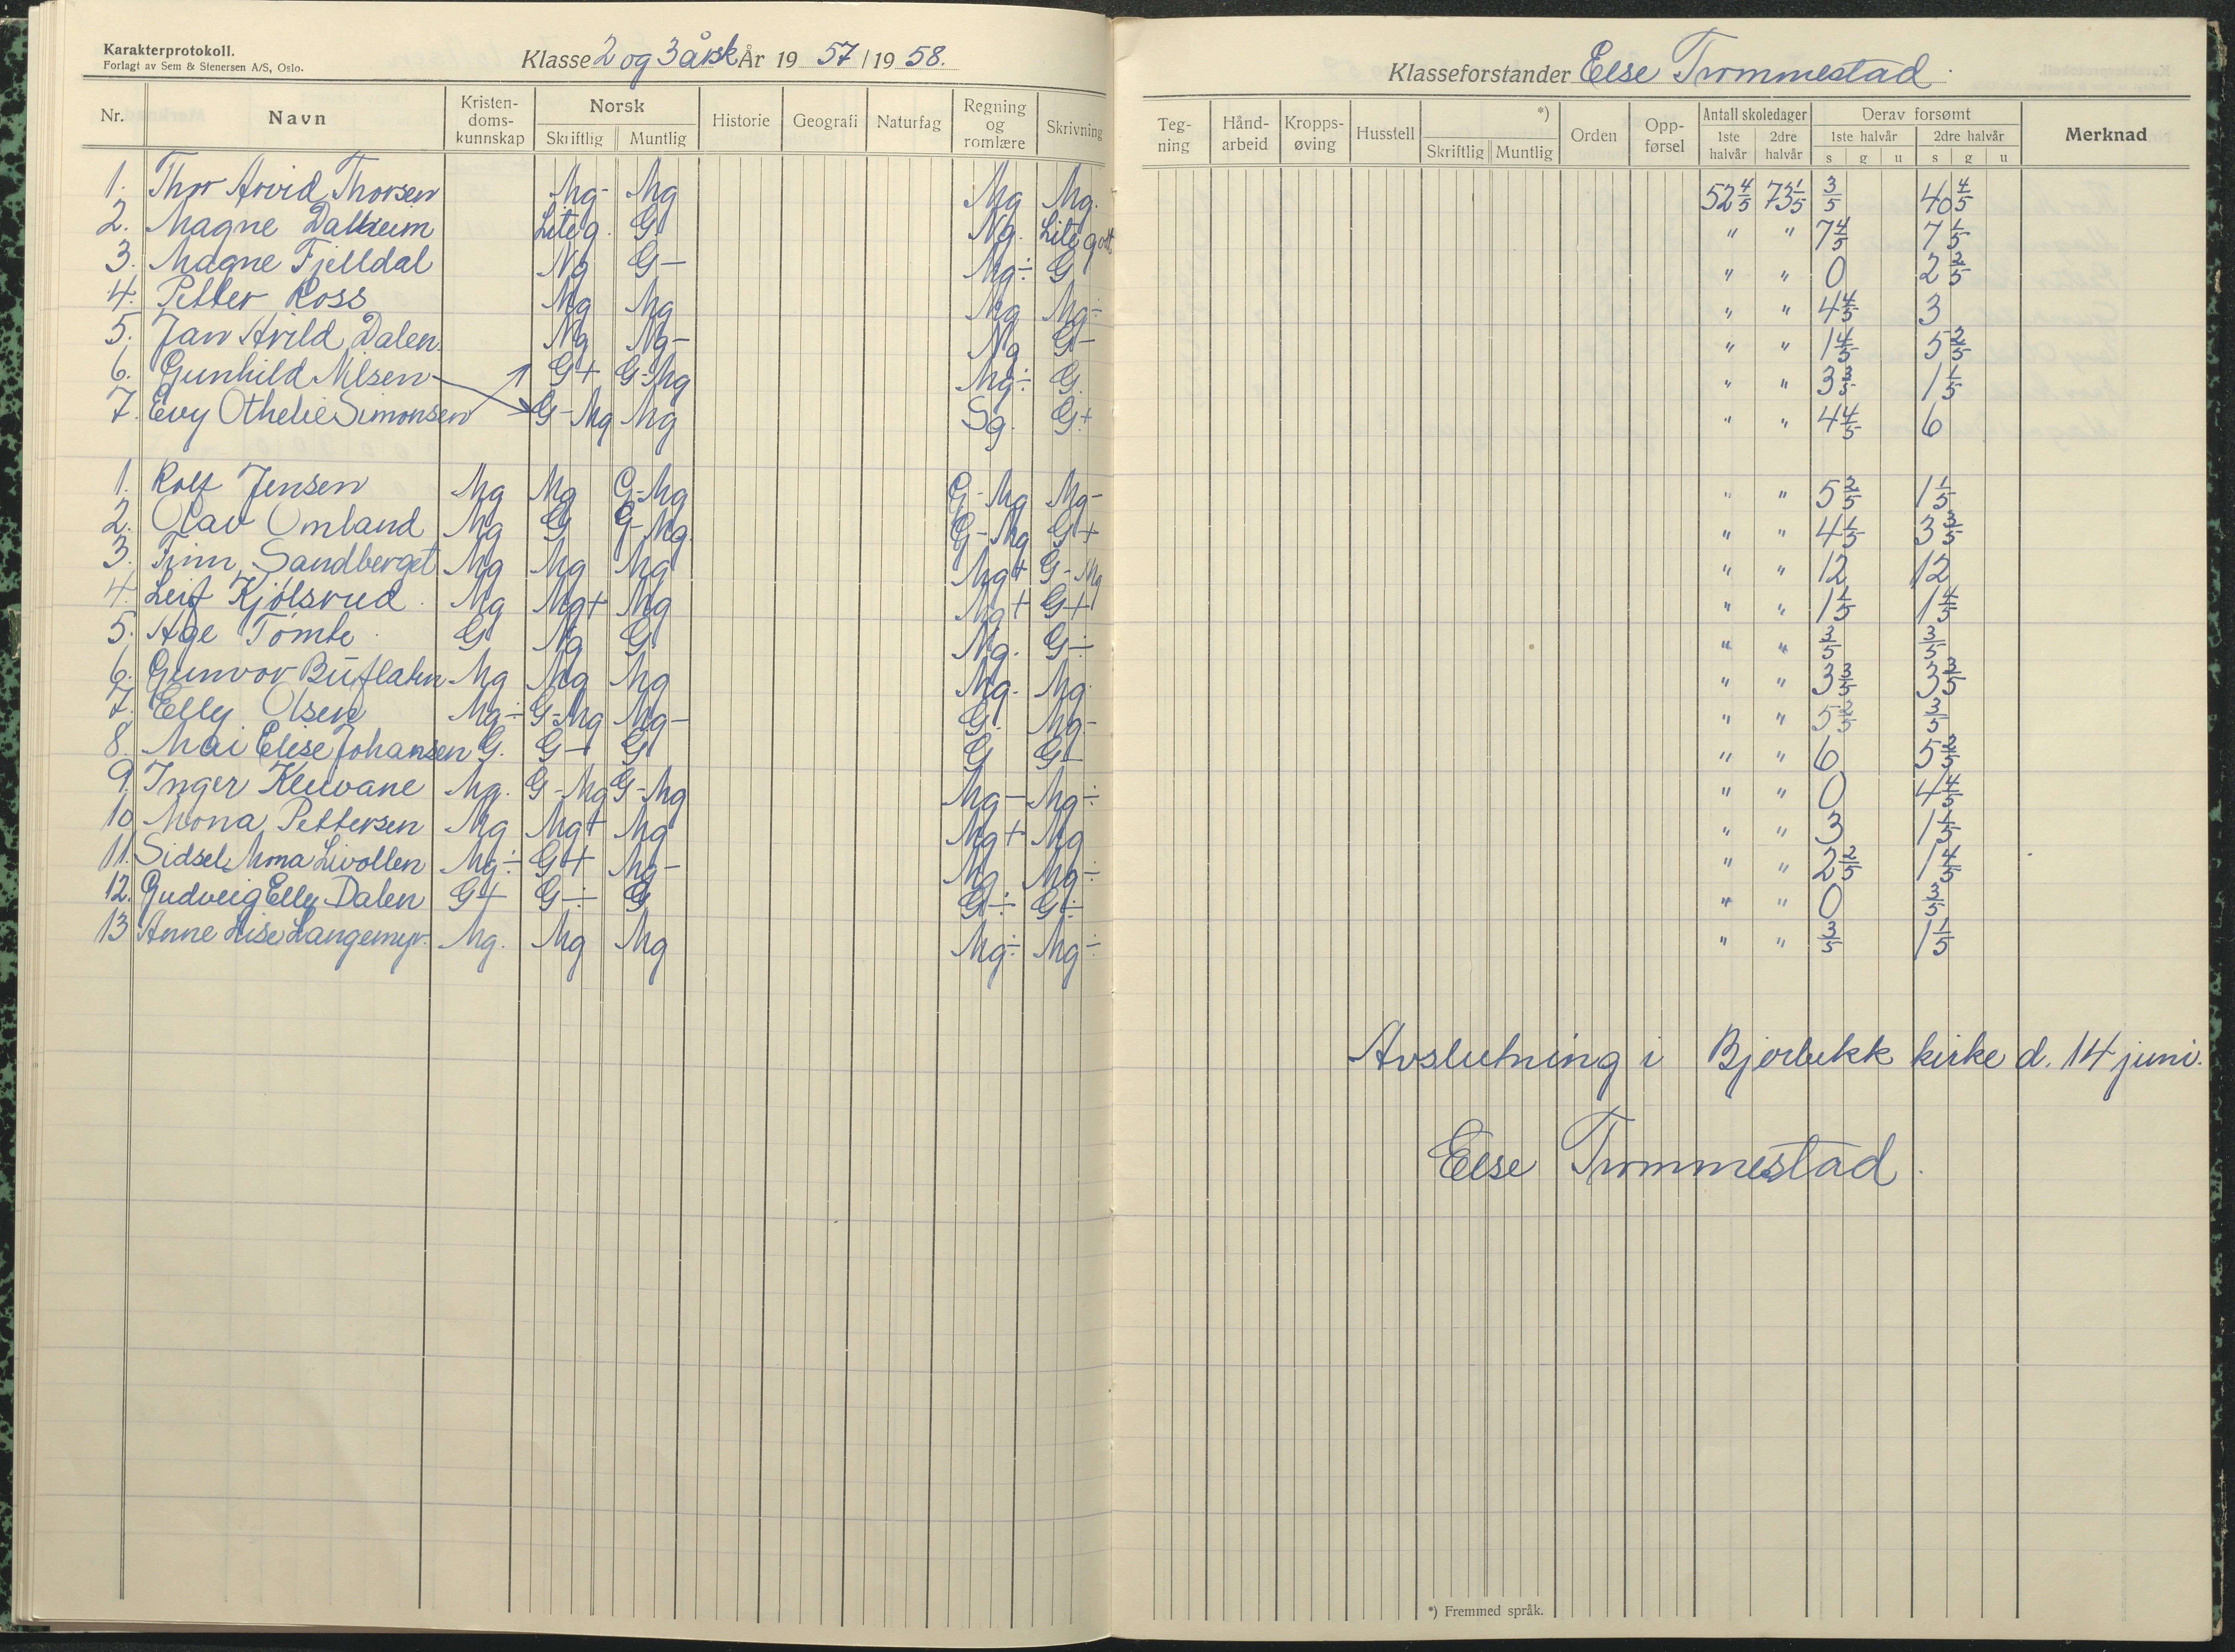 Karakterprotokoll.
Forlagt av Sem & Stenersen A/S, Oslo.
Klasse 2 og 3 årsk År 19 57 / 19 58.
Nr. Navn Kristen-doms-kunnskap Norsk Skriftlig Muntlig Historie Geografi Naturfag Regning og romlære Skrivning
1. Thor Arvid Thorsen Mg- Mg Mg Mg.
2. Magne Lite g. G Ng. Lite godt
3. Magne Fjelldal Ng G- Mg÷ G
4. Petter Ross Mg Mg Mg Mg÷
5. Jan Arild Dalen. Ng Ng- Ng G-
6. Gunhild Nilsen G+ G-Mg Mg÷ G.
7. Evy Othelie Simonsen G-Mg Mg Sg. G+
1. Rolf Jensen Mg Mg G-Mg G-Mg Mg-
2. Olav Omland Mg G G-Mg. G-Mg G+
3. Finn Sandberget Mg Mg Mg Mg+ G-Mg
4. Leif Kjølsrud. Mg Mg+ Mg Mg+ G+
5. Åge Tømte. G Ng G Ng. G÷
6. Gunvor Buflaten Mg Mg Mg Mg. Mg.
7. Elly Olsen Mg÷ G-Mg Mg- G. Mg-
8. Mai Elise Johansen G. G+ G G G-
9. Inger Kleivane Mg. G-Mg G-Mg Mg- Mg÷
10. Mona Pettersen Mg Mg+ Mg Mg+ Mg
11. Sidsel Mona Livollen Mg÷ G+ Mg- Mg Mg÷
12. Gudveig Elly Dalen G+ G÷ G G÷ G÷
13 Anne Lise Langemyr. Mg. Mg Mg Mg÷ Mg÷
Klasseforstander Else Trommestad.
Teg-ning Hånd-arbeid Kropps-øving Husstell *) Skriftlig Muntlig Orden Opp-førsel Antall skoledager 1ste halvår 2dre halvår Derav forsømt 1ste halvår s g u 2dre halvår s g u Merknad
52 4/5 73 1/5 3/5 40 4/5
" " 7 4/5 7 1/5
" " 0 2 2/5
" " 4 4/5 3
" " 1 4/5 5 2/5
" " 3 3/5 1 1/5
" " 4 4/5 6
" " 5 2/5 1 1/5
" " 4 1/5 3 3/5
" " 12 12
" " 1 1/5 1 4/5
" " 3/5 3/5
" " 3 3/5 3 3/5
" " 5 2/5 3/5
" " 6 5 2/5
" " 0 4 4/5
" " 3 1 1/5
" " 2 2/5 1 4/5
" " 0 3/5
" " 3/5 1 1/5
Avslutning i Bjorbekk kirke d. 14 juni.
Else Trommestad.
*) Fremmed språk.